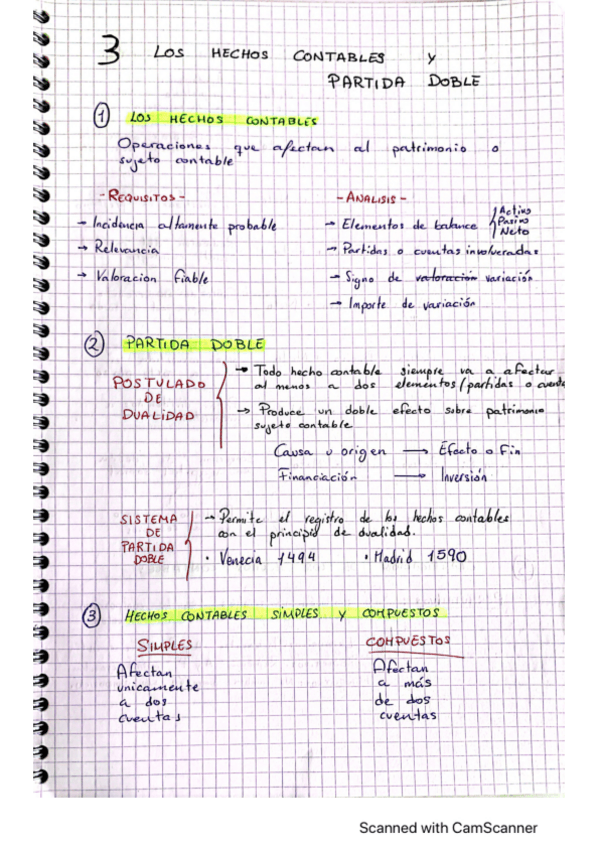 3 LOS HECHOS CONTABLES Y
PARTIDA DOBLE
1 LOS HECHOS CONTABLES
Operaciones que afectan al patrimonio o
sujeto contable
- REQUISITOS -
→ Incidencia altamente probable
→ Relevancia
→ Valoracion fiable
- ANALISIS -
→ Elementos de balance { Activo
Pasivo
Neto
→ Partidas o cuentas involucradas
→ Signo de valoración variación
→ Importe de variación
2 PARTIDA DOBLE
POSTULADO
DE
DUALIDAD
→ Todo hecho contable siempre va a afectar
al menos a dos elementos/partidas o cuenta
→ Produce un doble efecto sobre patrimonio
sujeto contable
Causa u origen → Efecto o Fin
Financiación → Inversión
SISTEMA
DE
PARTIDA
DOBLE
→ Permite el registro de los hechos contables
con el principio de dualidad.
• Venecia 1494 • Madrid 1590
3 HECHOS CONTABLES SIMPLES Y COMPUESTOS
SIMPLES
Afectan
unicamente
a dos
cuentas
COMPUESTOS
Afectan
a más
de dos
cuentas
Scanned with CamScanner